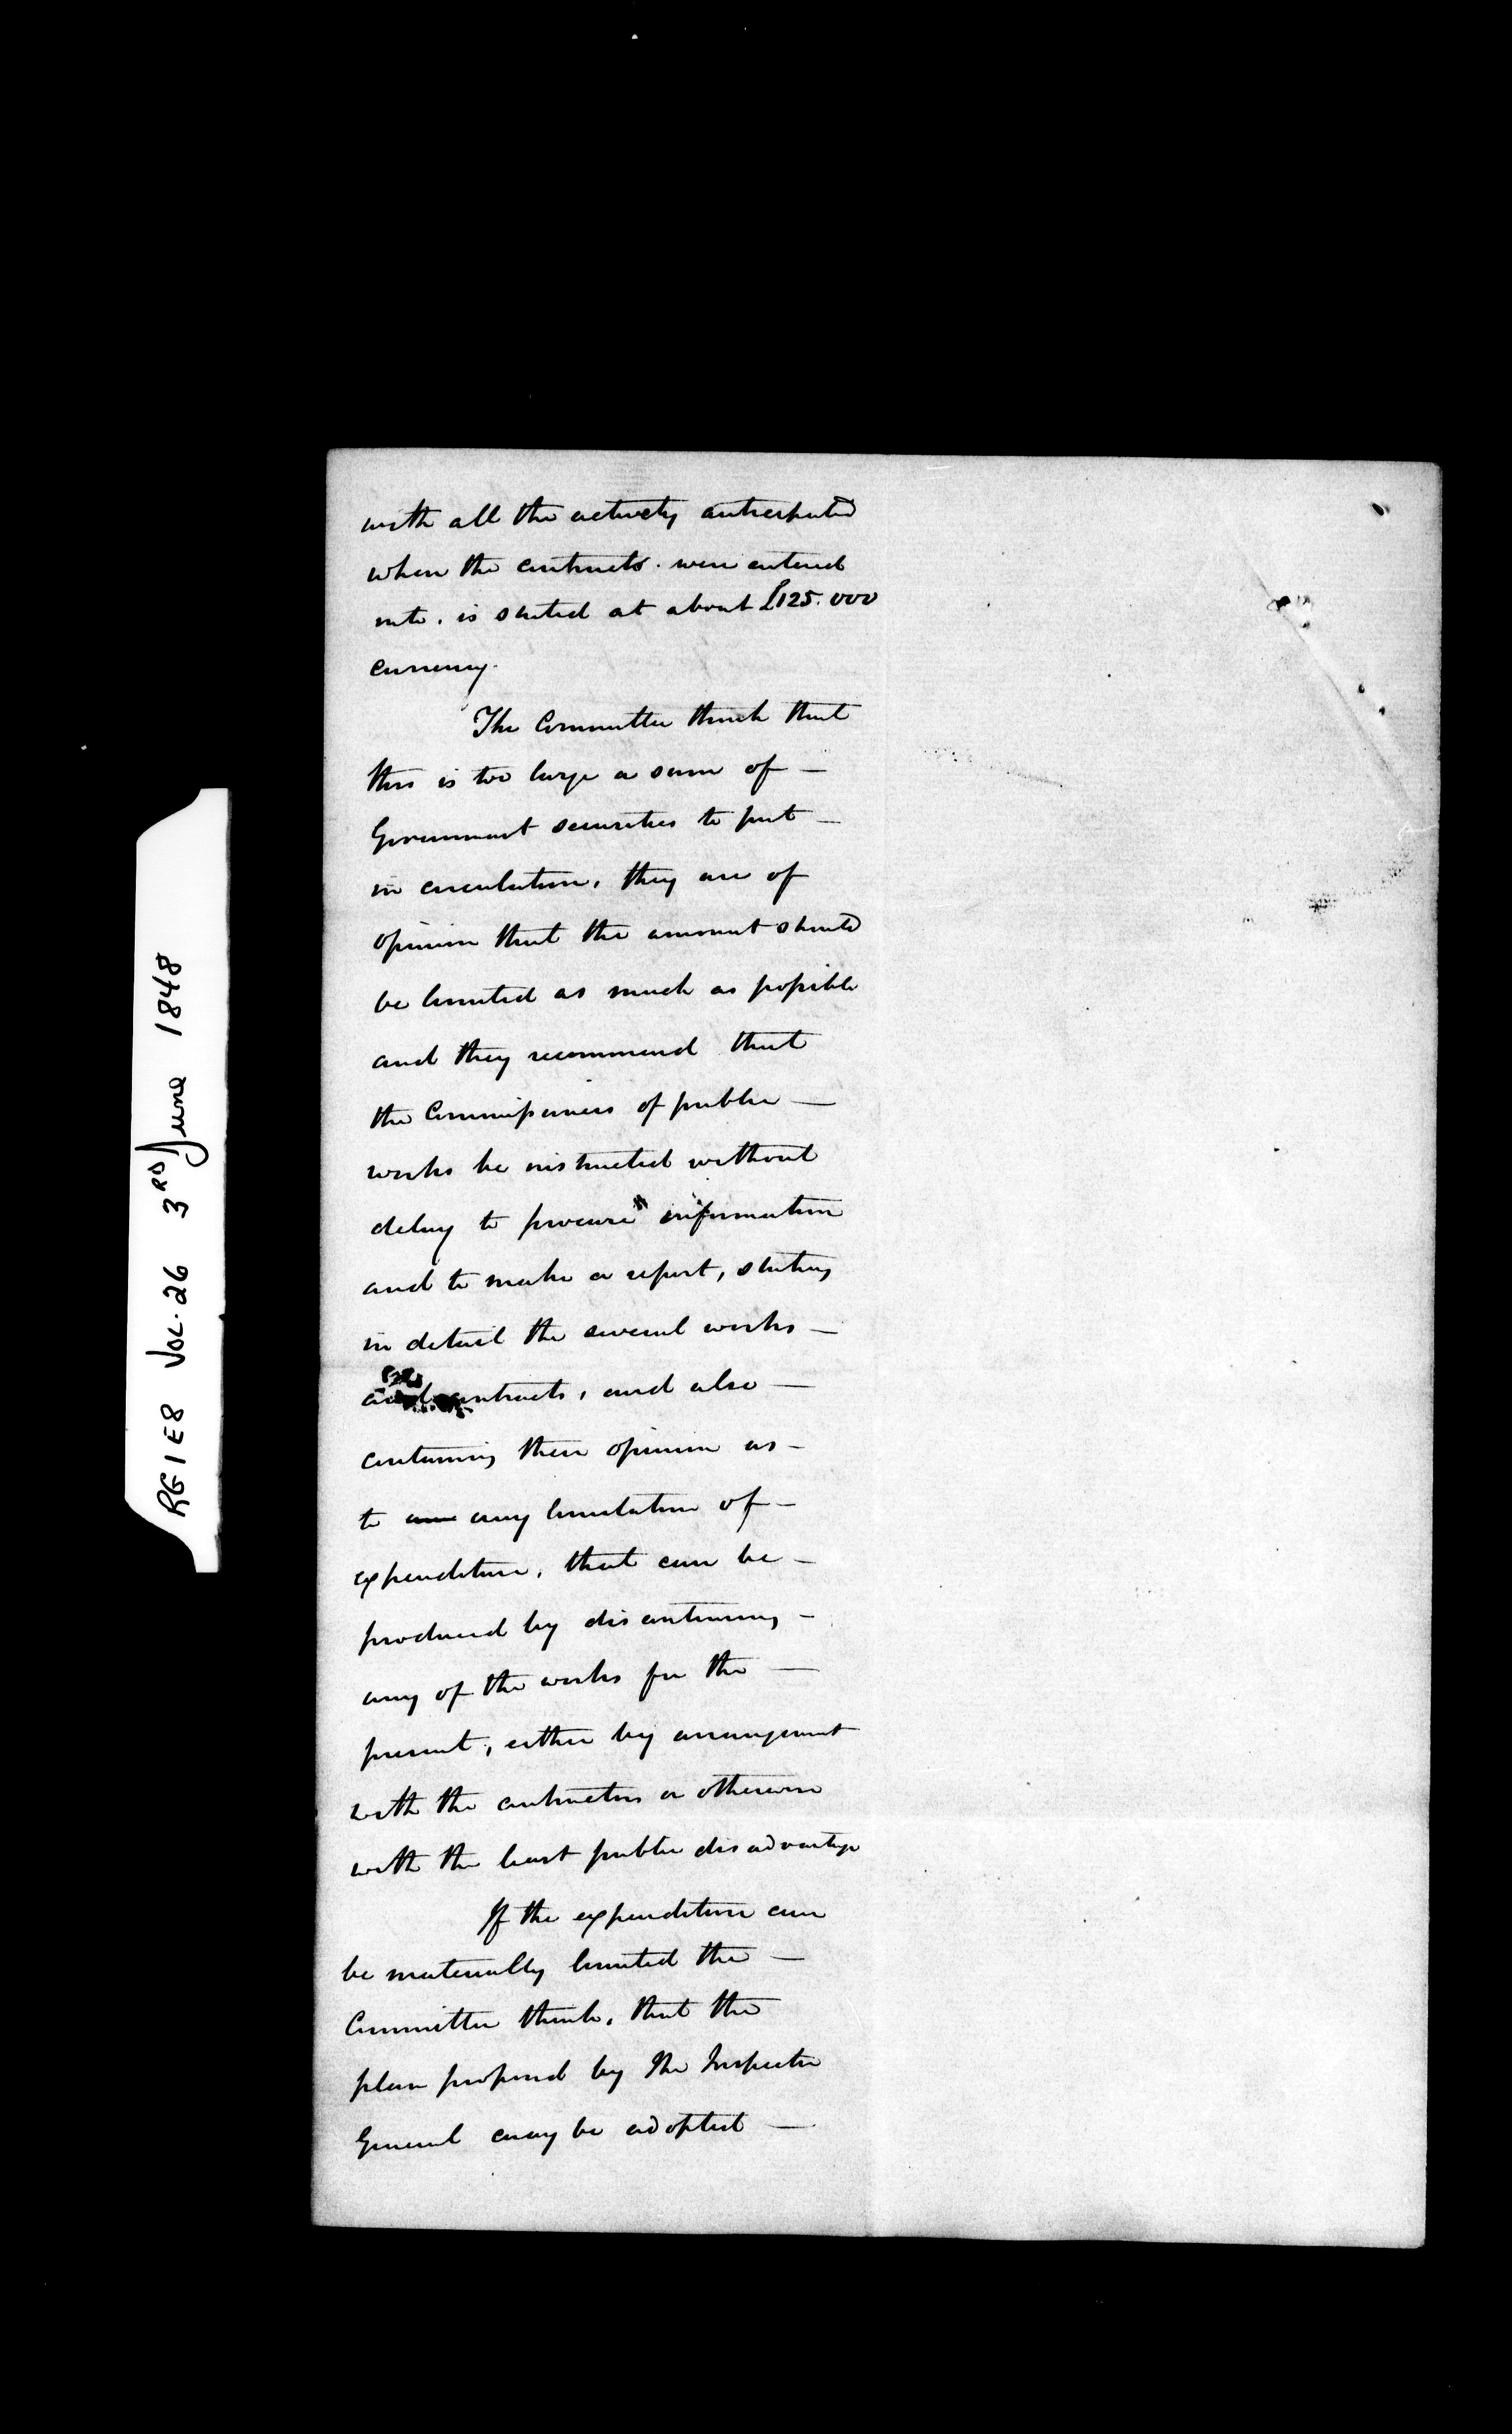 with all the activity anticipated
when the contracts were entered
into. is stated at about £125.000
currency.
The Committee think that
this is too large a sum of —
Government securities to put —
in circulation, they are of
opinion that the amount should
be limited as much as possible
and they recommend that
the Commissioners of public —
works be instructed without
delay to procure information
and to make a report, stating
in detail the several works —
and contracts, and also —
containing their opinion as —
to any limitation of —
expenditure, that can be —
produced by discontinuing —
any of the works for the —
present, either by arrangement
with the contractors or otherwise
with the least public disadvantage
If the expenditure can
be materially limited the —
Committee think, that the
plan proposed by the Inspector
General may be adopted —
RG1E8 VOL. 26 3RD June 1848